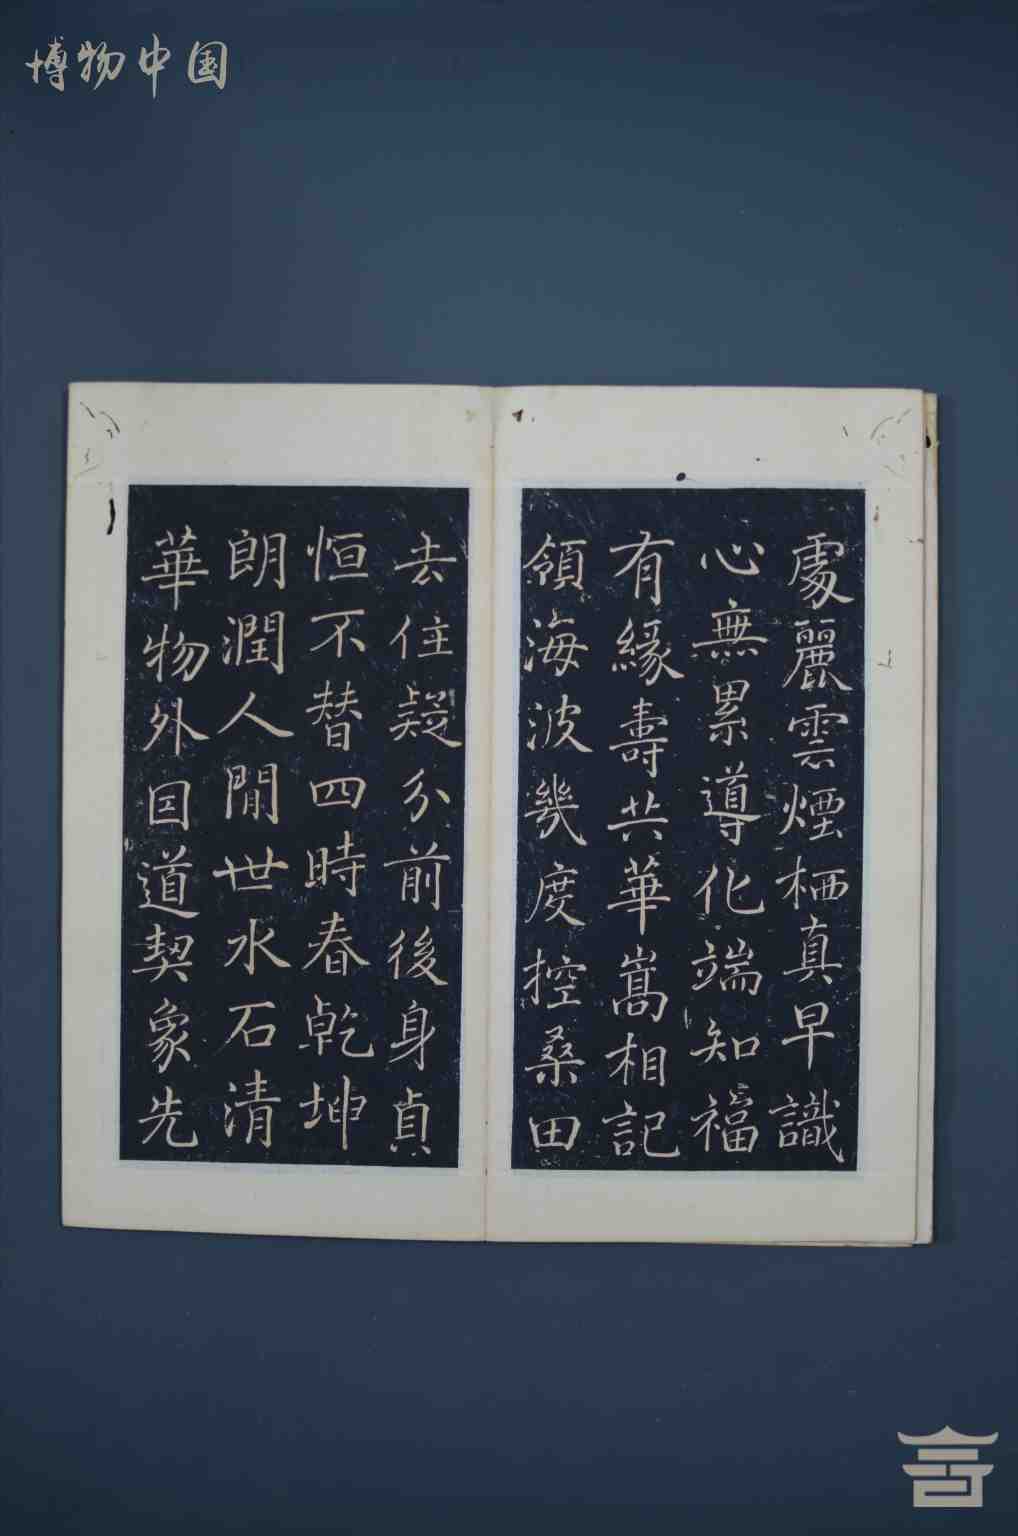 博物中国
處麗雲煙栖真早識
心無累導化端知福
有緣壽共華嵩相記
領海波幾度控桑田
去住疑分前後身貞
恒不替四時春乾坤
朗潤人閒世水石清
華物外因道契象先